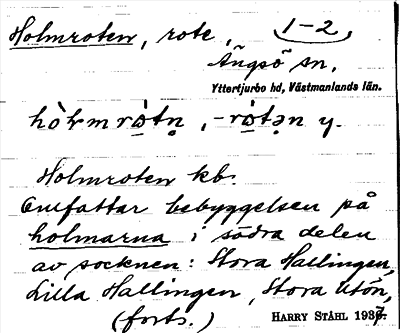 Holmroten, rote, 1-2,
Ängsö sn,
Yttertjurbo hd, Västmanlands län.
hòłmròtn̥, -ròtən y.
Holmroten kb.
Omfattar bebyggelsen på
holmarna i södra delen
av socknen: Stora Hallingen,
Lilla Hallingen, Stora Utön,
(forts.) HARRY STÅHL 1937.